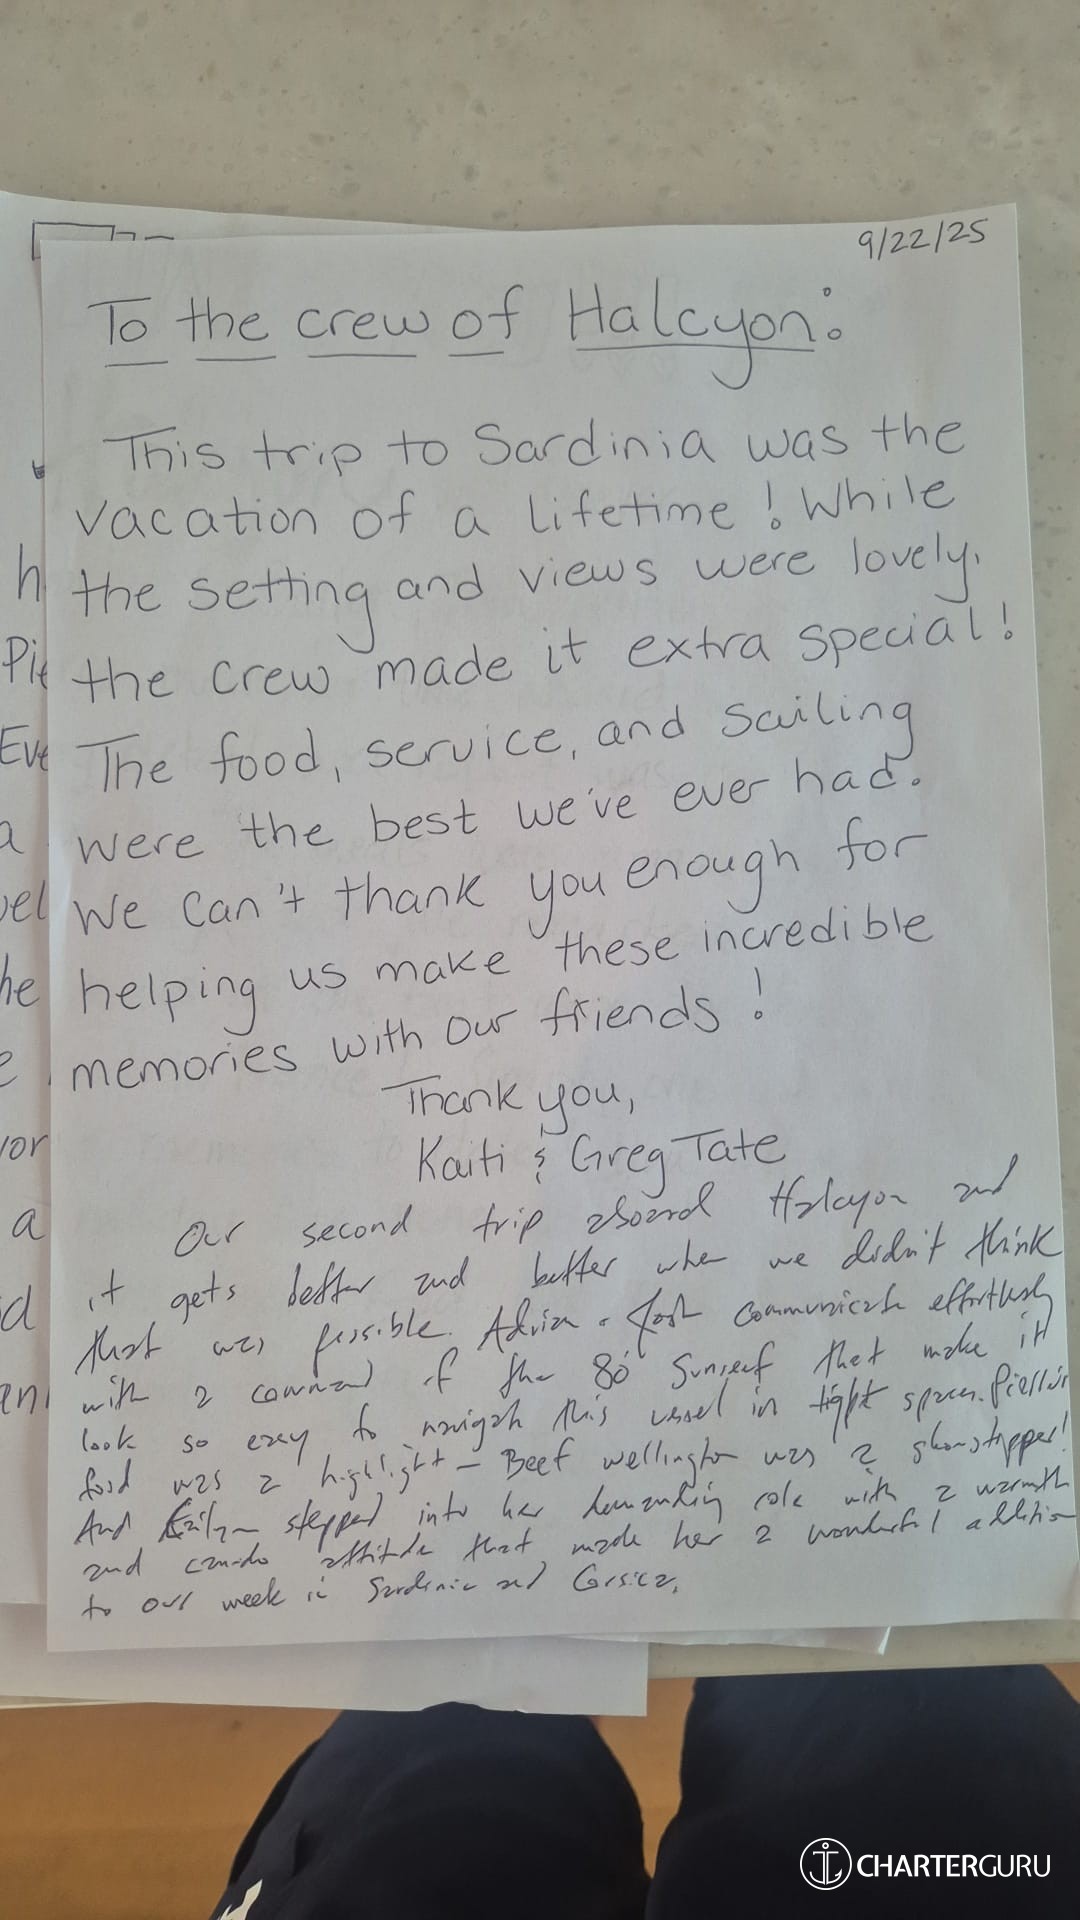 9/22/25
To the crew of Halcyon:
This trip to Sardinia was the
vacation of a lifetime! While
the setting and views were lovely,
the crew made it extra special!
The food, service, and sailing
were the best we've ever had.
We can't thank you enough for
helping us make these incredible
memories with our friends!
Thank you,
Kaiti & Greg Tate
Our second trip aboard Halcyon and
it gets better and better when we didn't think
that was possible. communicate effortlessly
with a command of the 80' Sunreef that make it
look so easy to navigate this vessel in tight spaces.
food was a highlight - Beef wellington was a showstopper!
And stepped into her demanding role with a warmth
and can-do attitude that made her a wonderful addition
to our week in Sardinia and Corsica.
h
Pie
Eve
a
vel
he
e
vor
a
d
an
CHARTERGURU